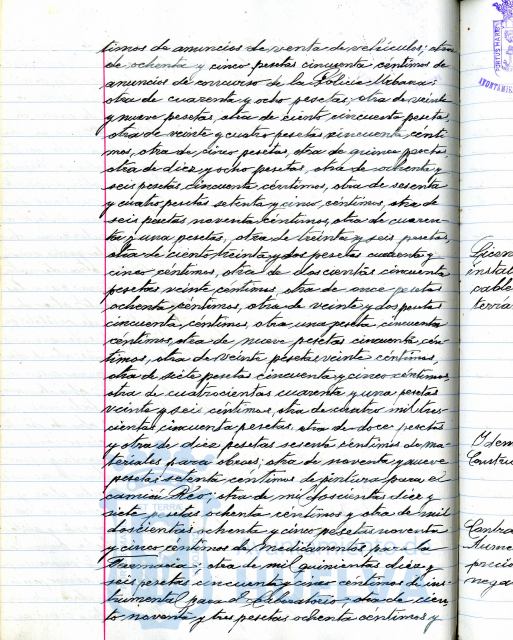 timos de anuncios de venta de vehículos; otra
de ochenta y cinco pesetas cincuenta céntimos de
anuncios de concurso de la Policía Urbana;
otra de cuarenta y ocho pesetas, otra de veinte
y nueve pesetas, otra de ciento cincuenta pesetas,
otra de veinte y cuatro pesetas cincuenta cénti-
mos, otra de cinco pesetas, otra de quince pesetas
otra de diez y ocho pesetas, otra de ochenta y
seis pesetas cincuenta céntimos, otra de sesenta
y cuatro pesetas setenta y cinco céntimos, otra de
seis pesetas noventa céntimos, otra de cuaren-
ta y una pesetas, otra de treinta y seis pesetas,
otra de ciento treinta y dos pesetas cuarenta y
cinco céntimos, otra de doscientas cincuenta
pesetas veinte céntimos, otra de once pesetas
ochenta céntimos, otra de veinte y dos pesetas
cincuenta céntimos, otra una peseta cincuenta
céntimos, otra de nueve pesetas cincuenta cén-
timos, otra de veinte pesetas veinte céntimos,
otra de siete pesetas cincuenta y cinco céntimos,
otra de cuatrocientas cuarenta y una pesetas
veinte y seis céntimos, otra de cuatro mil tres-
cientas cincuenta pesetas, otra de doce pesetas
y otra de diez pesetas sesenta céntimos de ma-
teriales para obras; otra de noventa y nueve
pesetas setenta céntimos de pintura para el
camión Reo; otra de mil doscientas diez y
siete pesetas ochenta céntimos y otra de mil
doscientas ochenta y cinco pesetas noventa
y cinco céntimos de medicamentos para la
Farmacia; otra de mil quinientas diez y
seis pesetas cincuenta y cinco céntimos de ins-
trumental para el Laboratorio, otra de cien-
to noventa y tres pesetas ochenta céntimos y
Licen
instal
cable
terrá
Idem
Constru
Contra
Aume
precio
nega
PORTUS MARIS
AYUNTAMIE